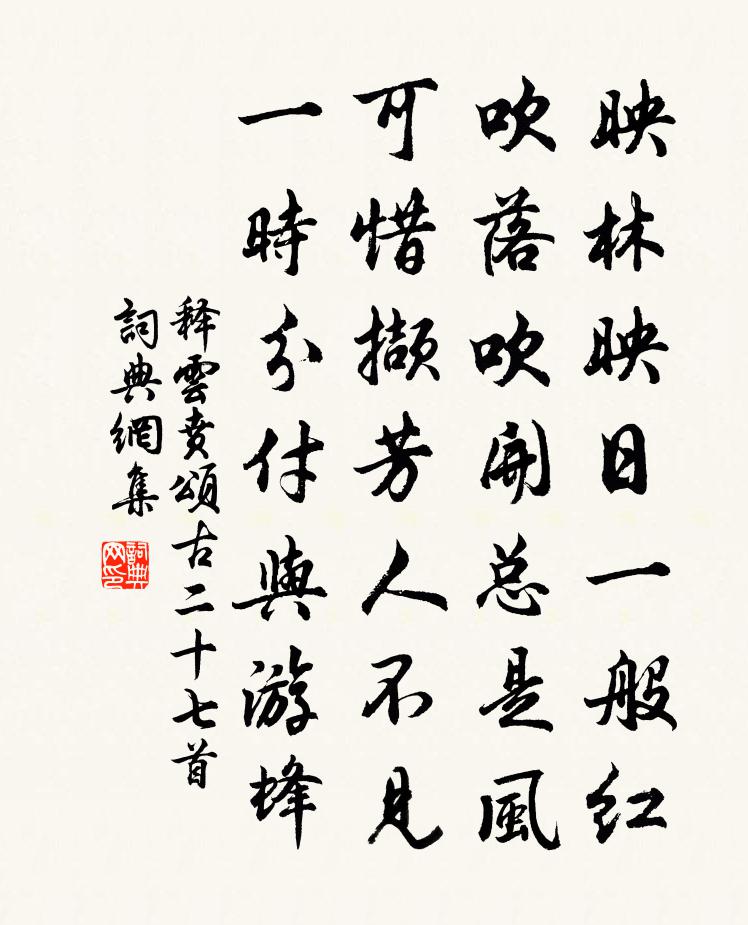 映林映日一般红
吹落吹開总是風
可惜擷芳人不見
一時分付與游蜂
释雲贲頌古二十七首
詞典網集
詞典网印